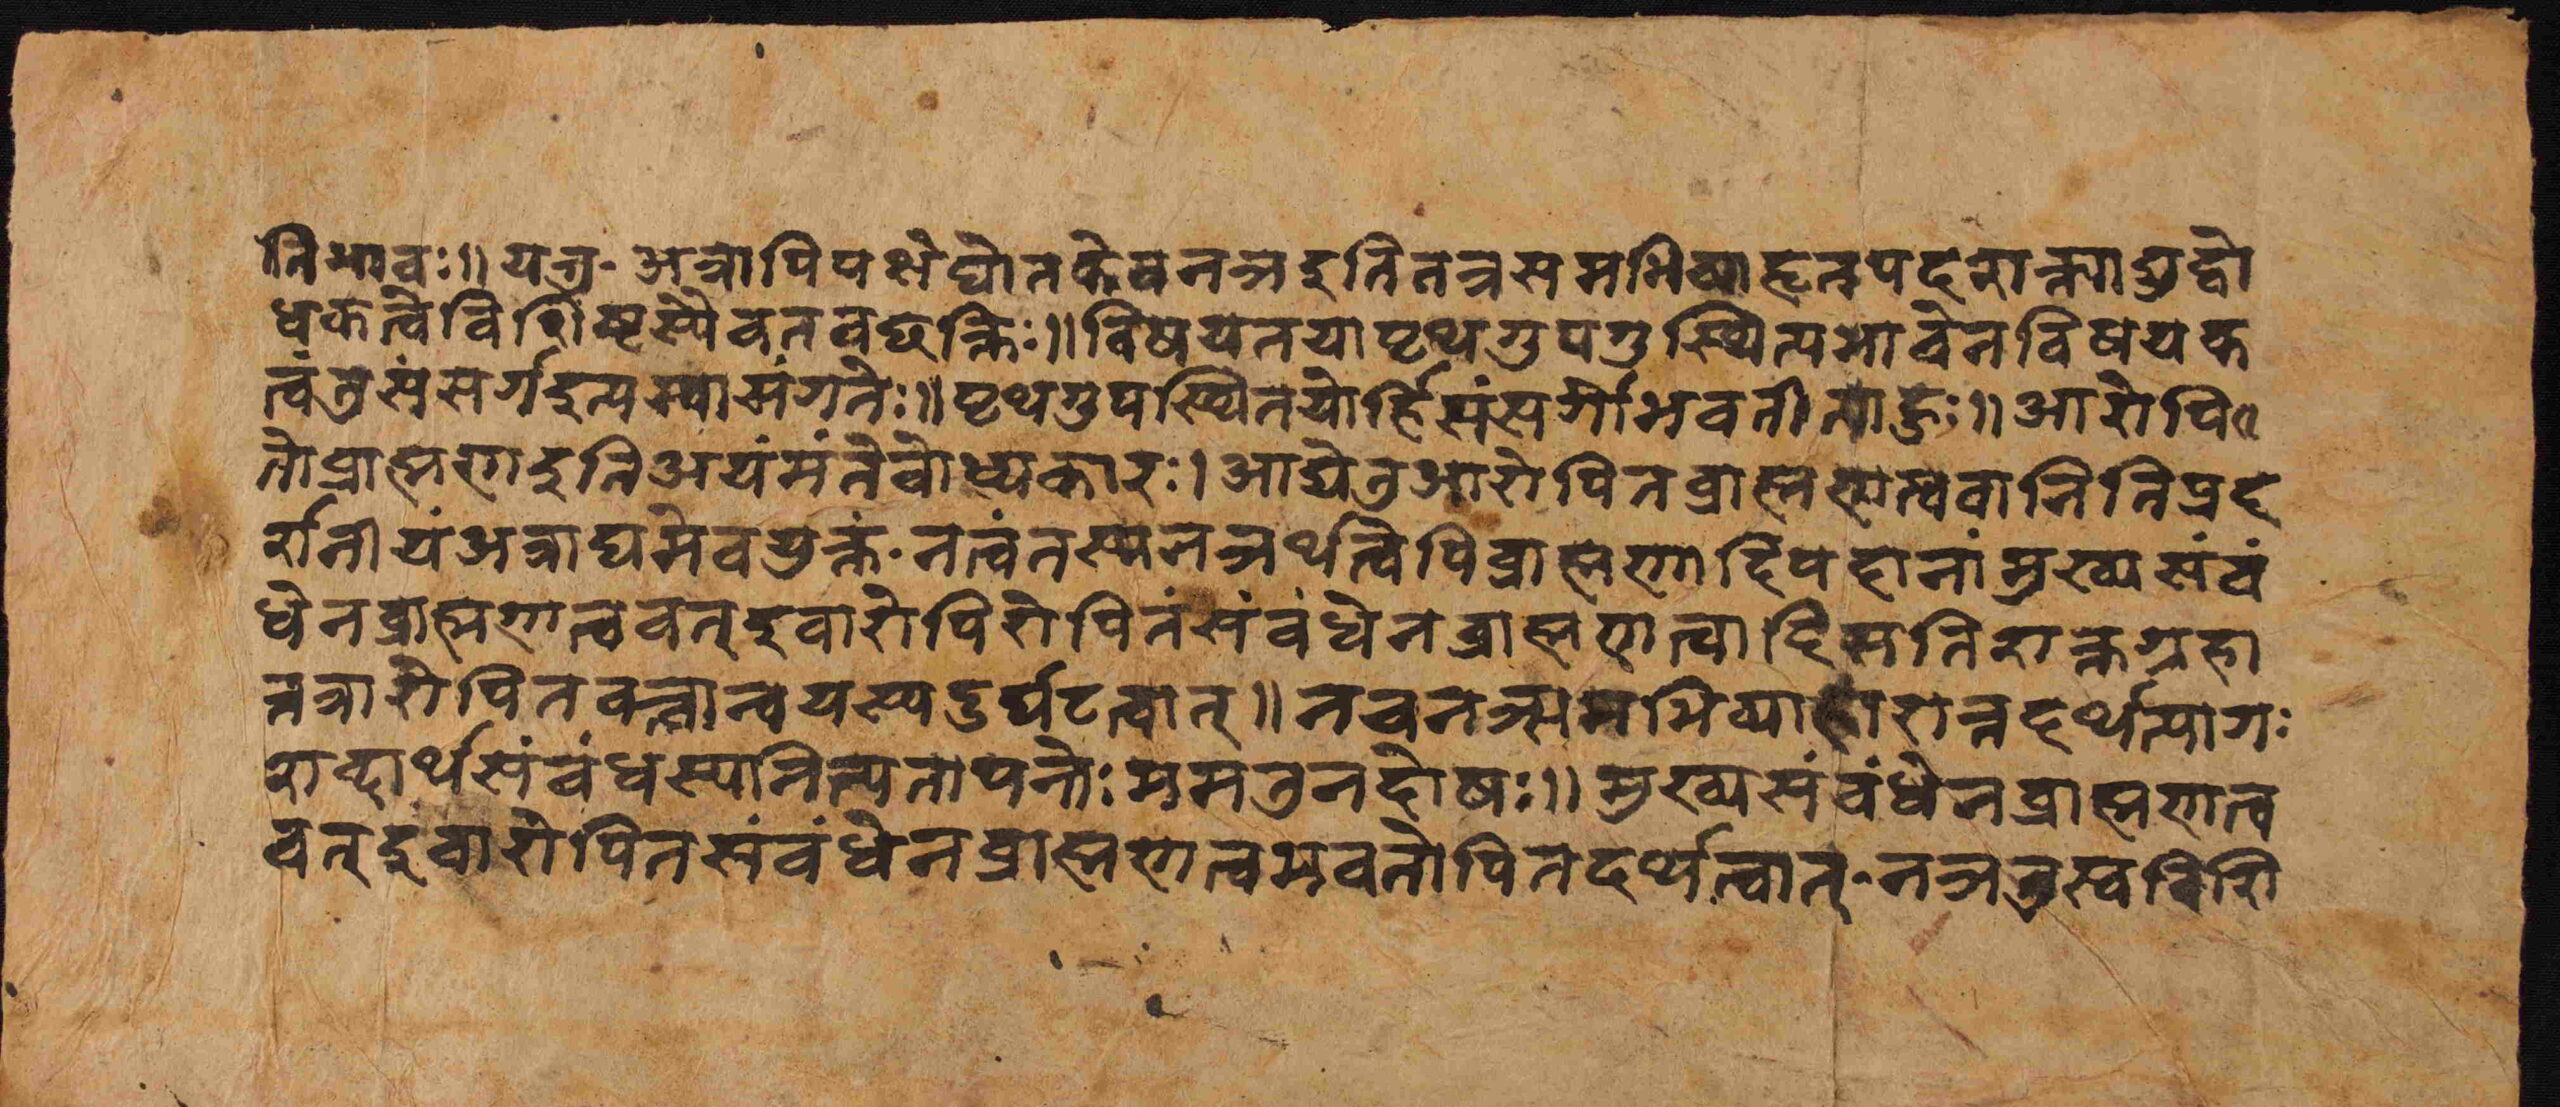 तिभावः॥यत्तु-अत्रापिपक्षेद्योतकेवनञइतितत्रसमभिव्याहृतपदशक्त्याद्युद्बो
धकत्वेविशिष्टस्यैवतवछक्तिः॥विषयतयापृथगुपगुस्थित्यभावेनविषयक
त्वंतुसंसर्गइत्यस्यासंगतेः॥पृथगुपस्थितयोर्हिसंसर्गोभवतीत्याहुः॥आरोपि
तोब्राह्मणइतिअयंमंतेबोध्यकारः।आद्येतुआरोपितब्राह्मणत्ववानितिप्रद
र्शनीयंअत्राद्यमेवयुक्तं-नत्वंतस्यनञर्थत्वेपिब्राह्मणादिपदानांमुख्यसंबं
धेनब्राह्मणत्ववत्इवारोपिरोपितंसंबंधेनब्राह्मणत्वादिमतिशक्तग्रहा
त्तत्रारोपितवत्त्वान्वयस्यदुर्घटत्वात्॥नचनञ्समभिव्याहारात्तदर्थत्यागः
शब्दार्थसंबंधस्यानित्यतापत्तेःममतुनदोषः॥मुख्यसंबंधेनब्राह्मणत्व
वत्इवारोपितसंबंधेनब्राह्मणत्वमवतोपितदर्थत्वात्-नञतुस्वविशि